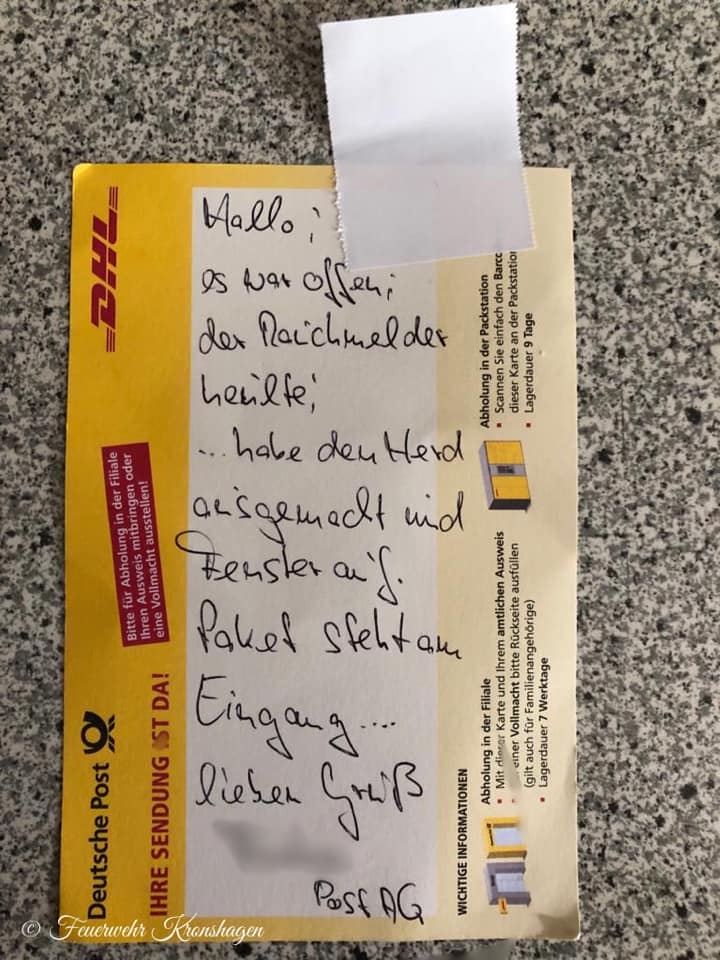 Hallo;
es war offen;
der Rauchmelder
heulte;
...habe den Herd
ausgemacht und
Fenster auf.
Paket steht am
Eingang....
lieben Gruß
Post AG
Deutsche Post
DHL
IHRE SENDUNG IST DA!
Bitte für Abholung in der Filiale
Ihren Ausweis mitbringen oder
eine Vollmacht ausstellen!
WICHTIGE INFORMATIONEN
Abholung in der Filiale
Mit dieser Karte und Ihrem amtlichen Ausweis
einer Vollmacht bitte Rückseite ausfüllen
(gilt auch für Familienangehörige)
Lagerdauer 7 Werktage
Abholung in der Packstation
Scannen Sie einfach den
dieser Karte an der Packstation
Lagerdauer 9 Tage
© Feuerwehr Kronshagen